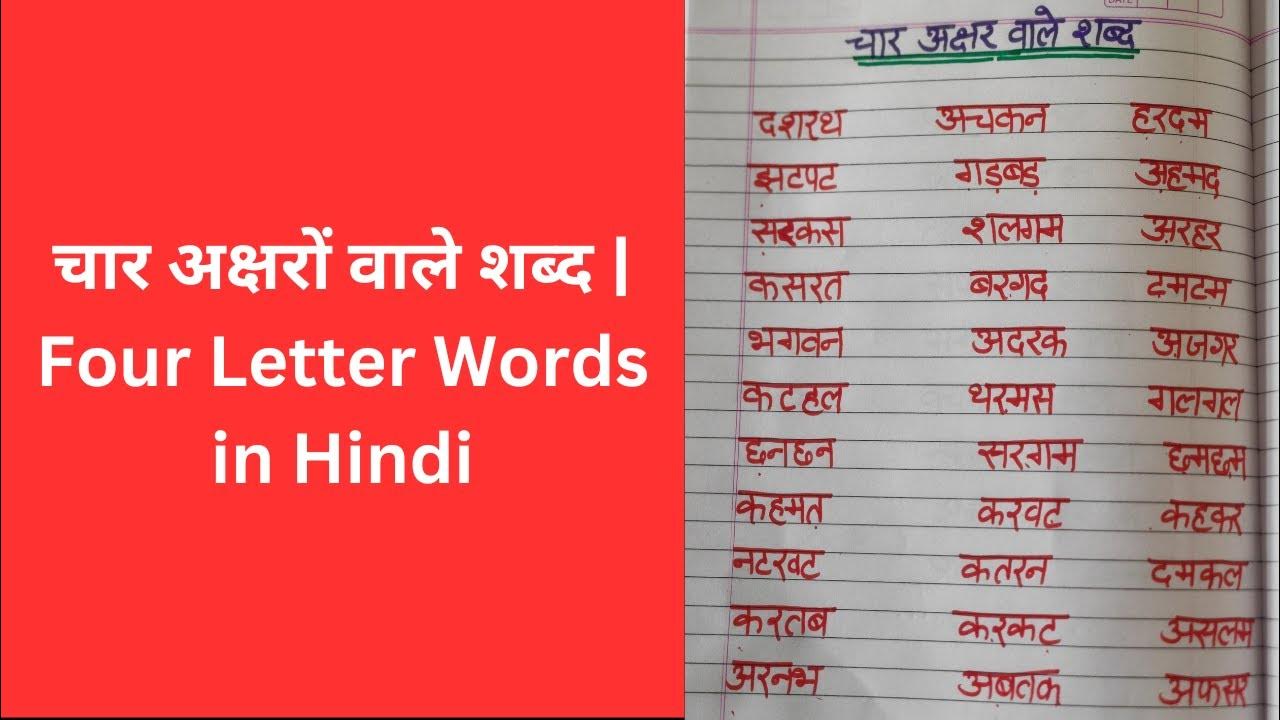 चार अक्षरों वाले शब्द |
Four Letter Words
in Hindi
चार अक्षर वाले शब्द
दशरथ अचकन हरदम
झटपट गड़बड़ अहमद
सरकस शलगम अरहर
कसरत बरगद टमटम
भगवन अदरक अजगर
कटहल थरमस गलगल
छनछन सरगम छमछम
कहमत करवट कहकर
नटखट कतरन दमकल
करतब करकट असलम
अरनभ अबतक अफसर